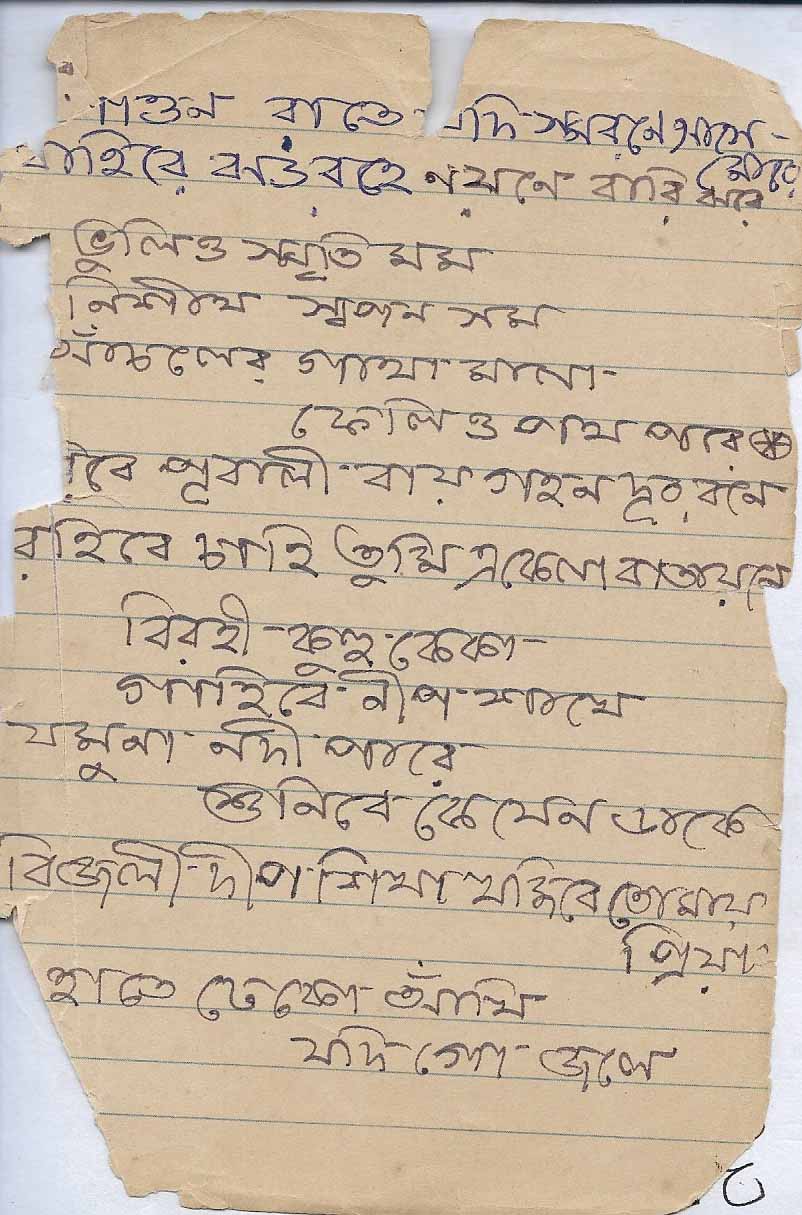 রাতে যদি স্মরণে আসে
মোরে
বাহিরে ঝড় বহে নয়নে বারি ঝরে
ভুলিও স্মৃতি মম
নিশীথ স্বপন সম
আঁচলের গাথা মালা
ফেলিও পথ পরে
পূবালী বায় গহন দূর বনে
রহিবে চাহি তুমি একেলা বাতায়নে
বিরহী কুহু কেকা
গাহিবে নীপ শাখে
যমুনা নদী পারে
শুনিবে কে যেন ডাকে
বিজলী দীপ শিখা খুঁজিবে তোমায়
প্রিয়া
হাতে ঢেকো আঁখি
যদি গো জলে